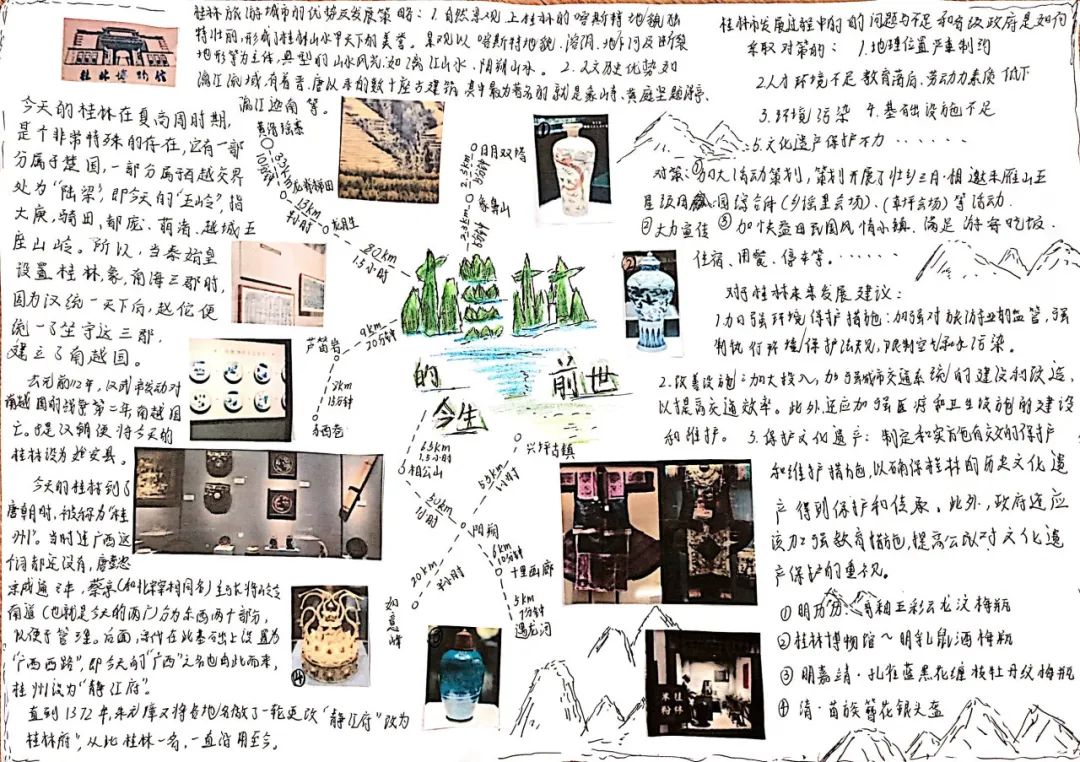 桂林博物馆
桂林旅游城市的优势及发展策略：1.自然景观上桂林的喀斯特地貌独
特壮丽，形成了桂林山水甲天下的美誉。景观以喀斯特地貌、溶洞、地下河及断裂
地形等为主体，典型的山水风光如漓江山水、阳朔山水。2.人文历史优势如
漓江流域有着晋、唐以来的数十座古建筑，其中最为著名的就是象山寺、黄庭坚题诗亭、
漓江迎南等。
今天的桂林在夏商周时期，
是个非常特殊的存在，它有一部
分属于楚国，一部分属百越交界
处为“陆梁”，即今天的“五岭”，指
大庾，骑田，都庞，萌渚，越城五
座山岭。所以，当秦始皇
设置桂林，象，南海三郡时，
因为汉统一天下后，赵佗便
统一了坐守这三郡，
建立了南越国。
公元前112年，汉武帝发动对
南越国的战争第二年南越国
亡。于是汉朝便将今天的
桂林设为始安县。
今天的桂林到了
唐朝时，被称为“桂
州”。当时连广西这
个词都还没有，唐懿宗
咸通三年，蔡京（和北宋宰相同名）主张将岭
南道（也就是今天的两广）分为东西两个部分，
以便于管理。后面，宋代在此基础上设置为
“广西西路”，即今天的“广西”之名也由此而来，
桂州设为“静江府”。
直到1372年，朱元璋又将各地名做了一轮更改“静江府”改为
桂林府”，从此桂林一名，一直沿用至今。
黄洛瑶寨
3.3km
10分钟
龙脊梯田
13km
半小时
龙胜
80km
1.5小时
日月双塔
2.5km
象鼻山
的
前世
今生
9km
20分钟
芦笛岩
13分钟
相公山
65km
1.5小时
兴坪古镇
1小时
阳朔
20km
半小时
如意峰
6km
10分钟
十里画廊
5km
7分钟
遇龙河
桂林
米粉
①
②
③
④
桂林市发展过程中的的问题与不足和各级政府是如何
采取对策的：1.地理位置严重制约
2.人才环境不足教育落后、劳动力素质低下
3.环境污染 4.基础设施不足
5.文化遗产保护不力······
对策：①加大活动策划，策划开展了壮乡三月·相邀来雁山五
星级田园综合体（乡谣里会场）、等活动.
②大力宣传 ③加快盘古民国风情小镇，满足游客吃饭、
住宿、用餐、停车等。······
对于桂林未来发展建议：
1.加强环境保护措施：加强对旅游业的监管，强
制执行环境保护法规，限制空气和水污染。
2.改善设施：加大投入，加强城市交通系统的建设和改造，
以提高交通效率。此外，还应加强医疗和卫生设施的建设
和维护。3.保护文化遗产：制定和实施有效的保护
和维护措施，以确保桂林的历史文化遗
产得到保护和传承。此外，政府还应
该加强教育措施，提高公众对文化遗
产保护的重视。
①明万历·青釉五彩云龙纹梅瓶
②桂林博物馆～明乳鼠酒梅瓶
③明嘉靖·孔雀蓝黑花缠枝牡丹纹梅瓶
④清·苗族簪花银头盔